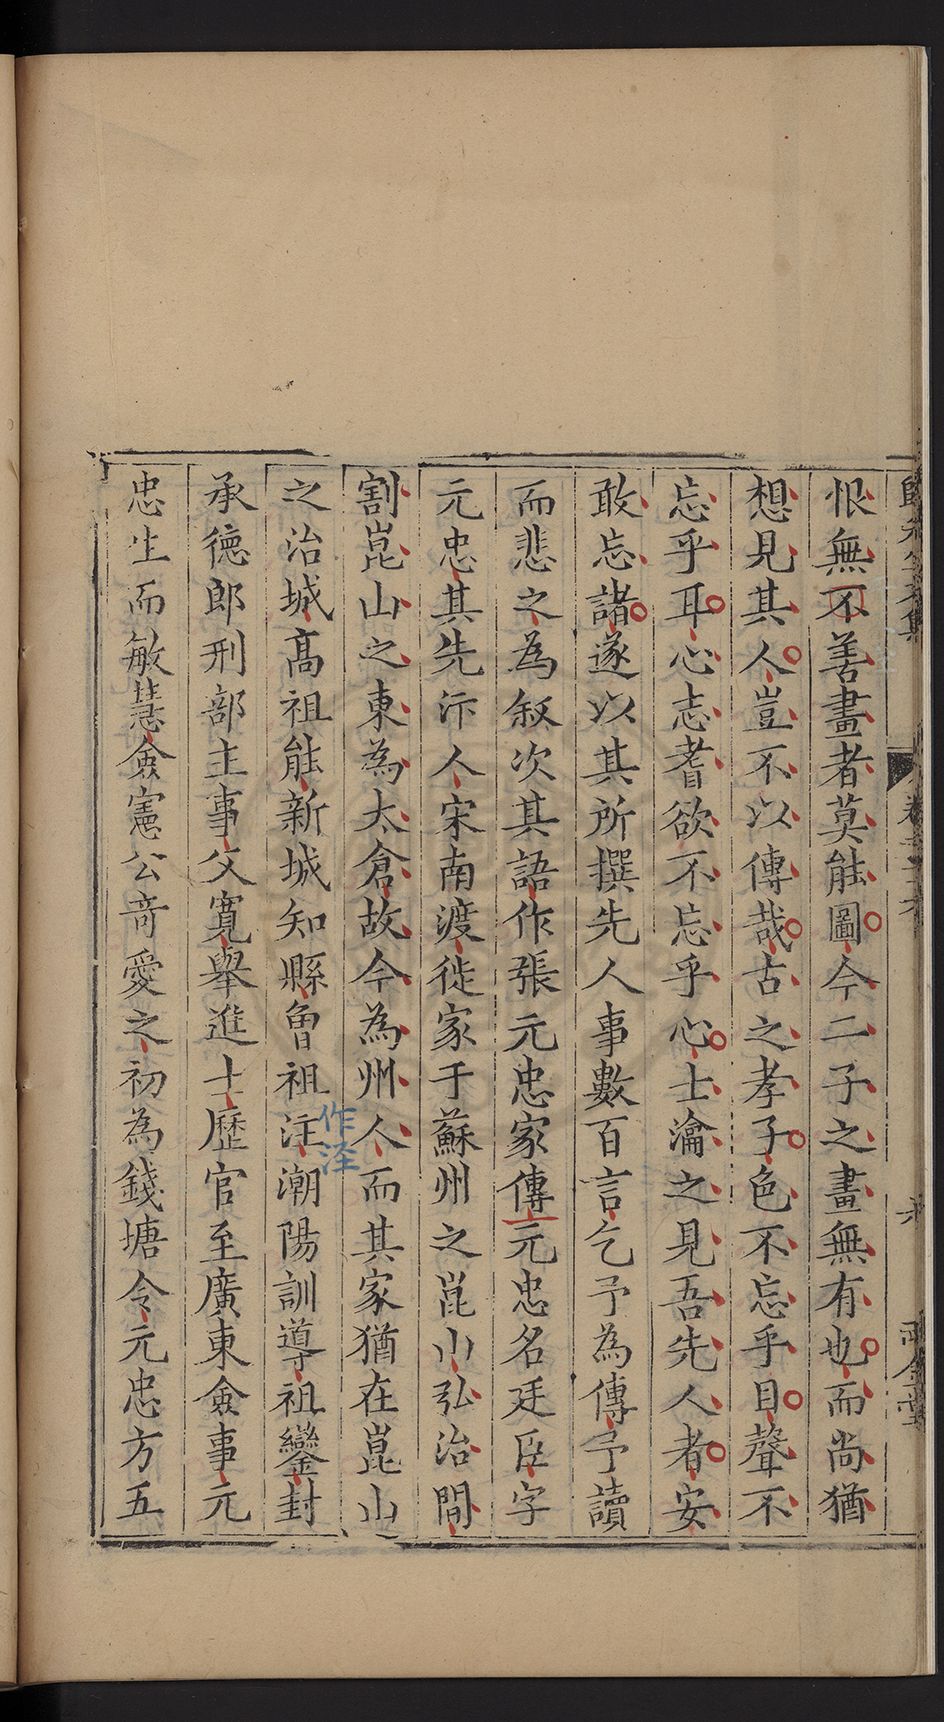 恨無不善畫者莫能圖今二子之畫無有也而尚猶
想見其人豈不以傳哉古之孝子色不忘乎目聲不
忘乎耳心志耆欲不忘乎心士瀹之見吾先人者安
敢忘諸遂以其所撰先人事數百言乞予為傳予讀
而悲之為叙次其語作張元忠家傳元忠名廷臣字
元忠其先汴人宋南渡徙家于蘇州之崑山弘治間
割崑山之東為太倉故今為州人而其家猶在崑山
之治城高祖能新城知縣曾祖注潮陽訓導祖鑾封
作泾
承德郎刑部主事父寬舉進士歷官至廣東僉事元
忠生而敏慧僉憲公奇愛之初為錢塘令元忠方五